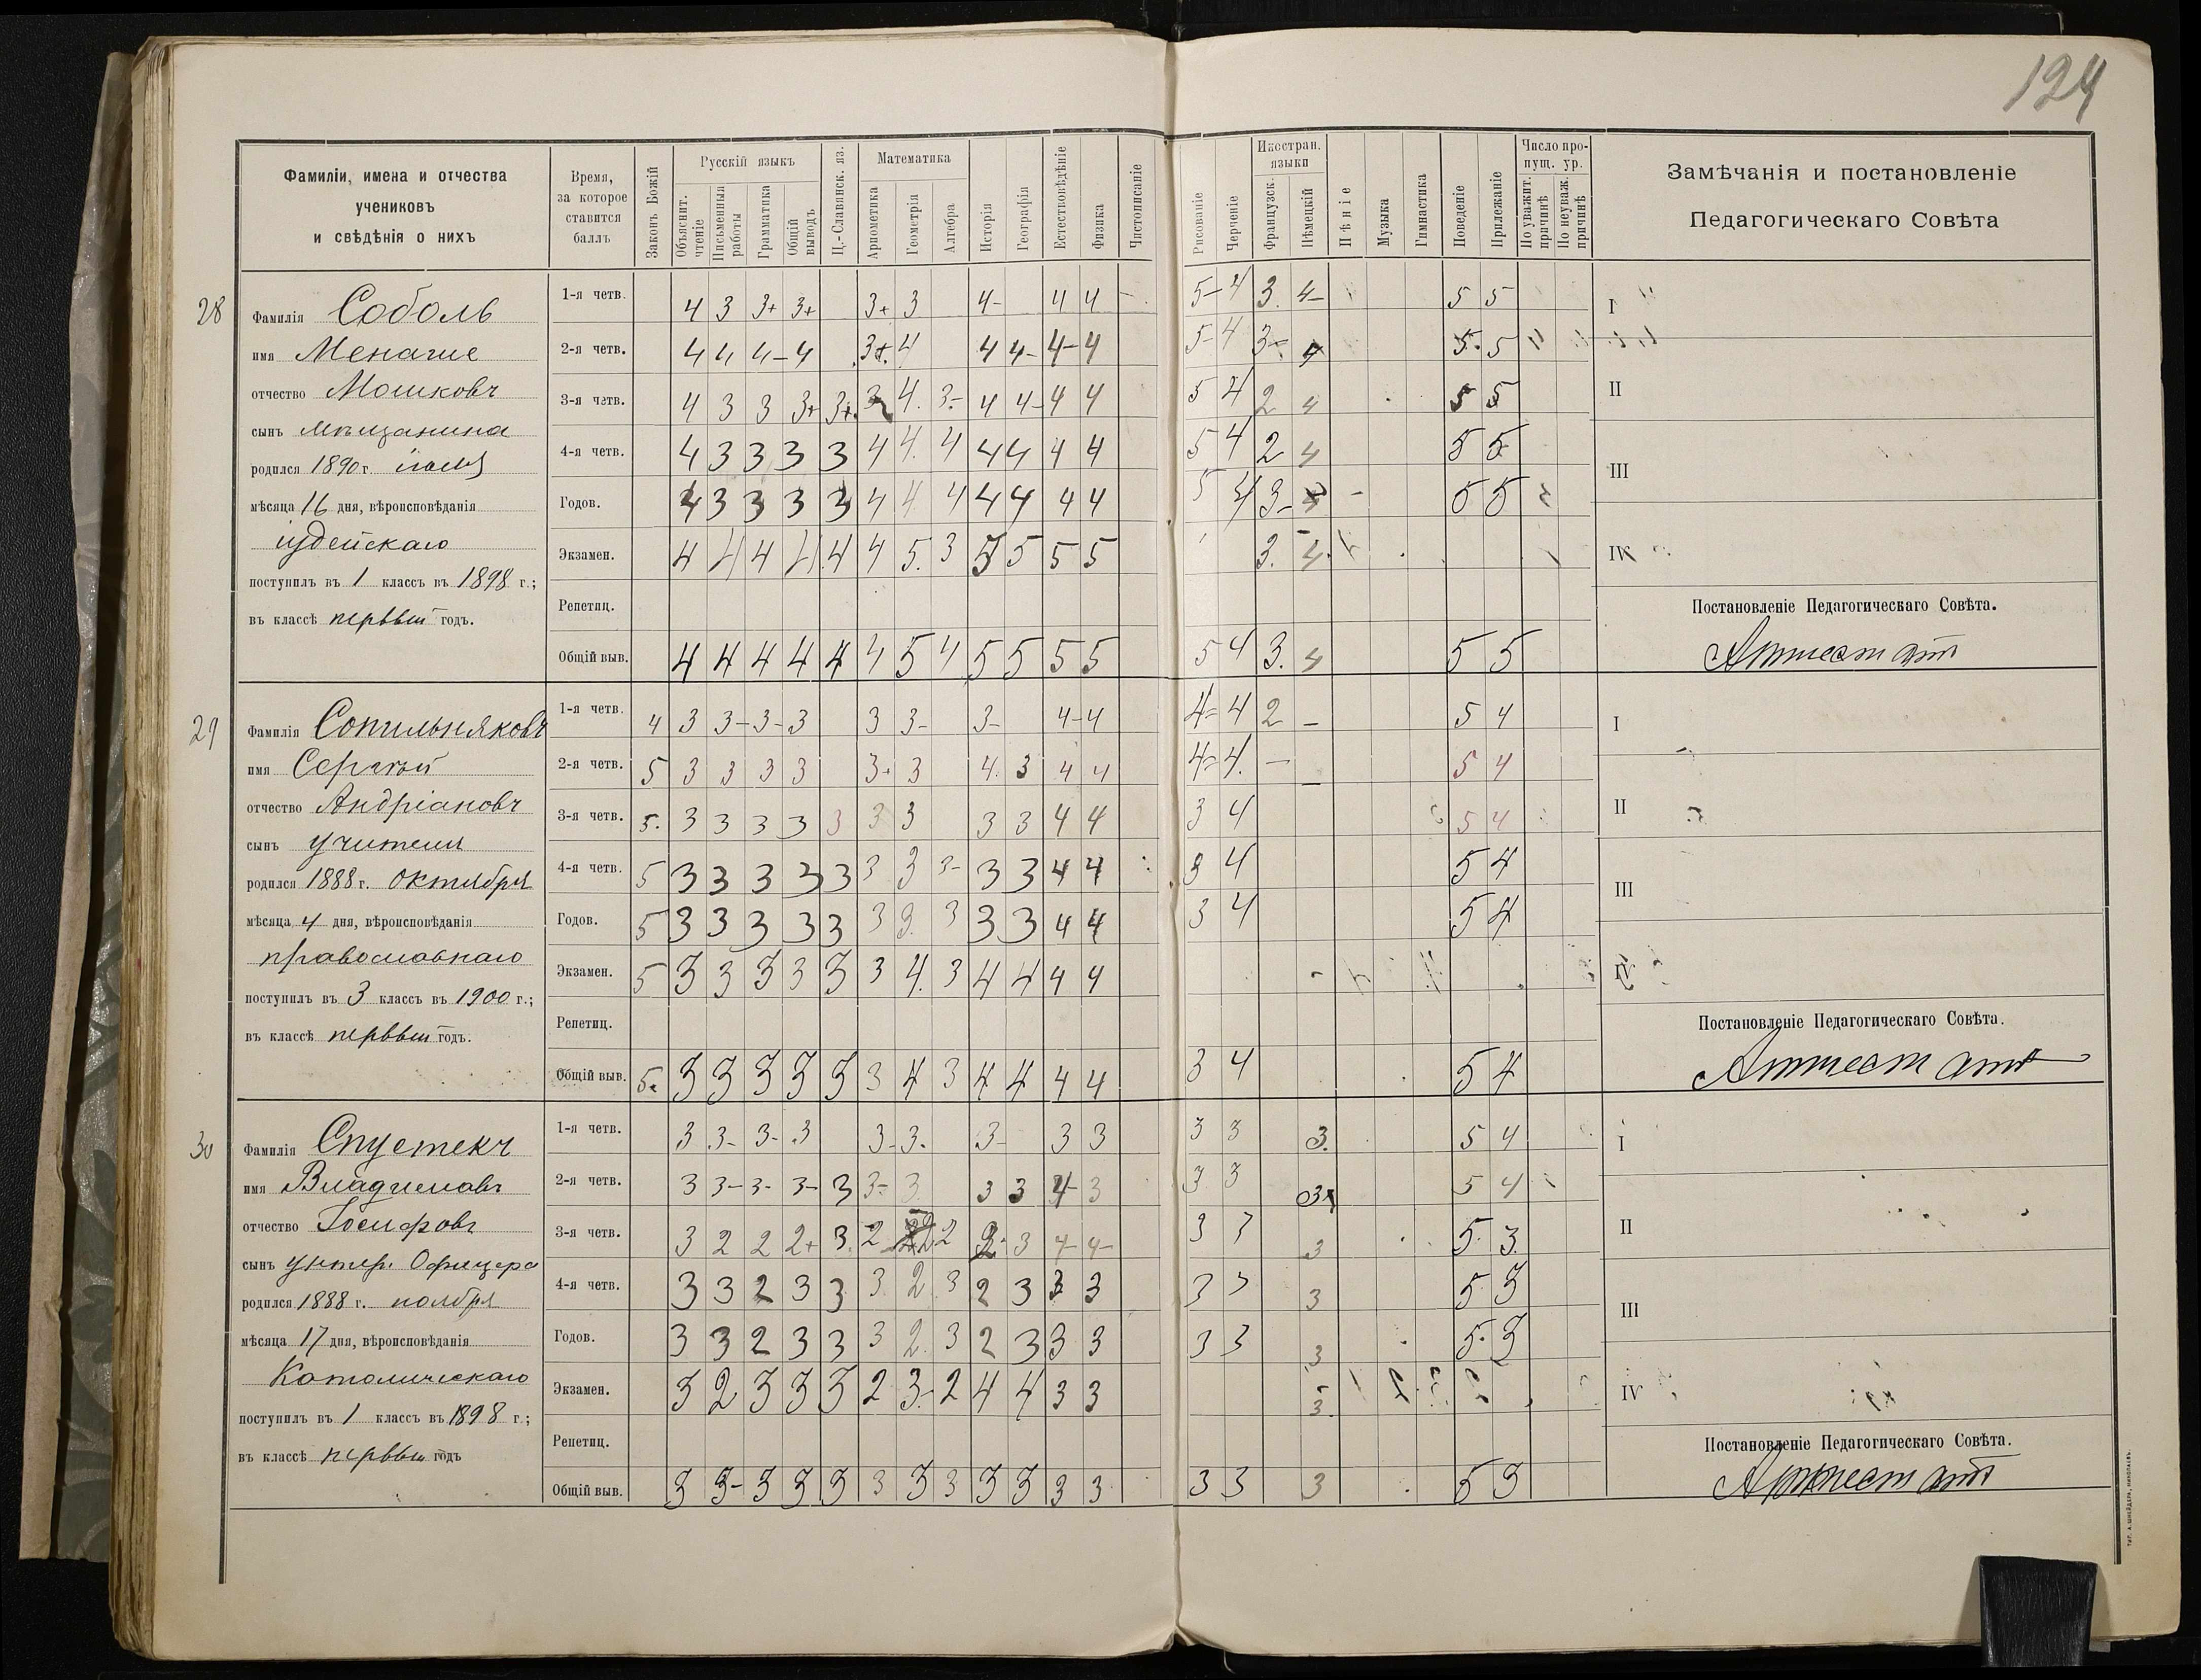 124
Фамиліи, имена и отчества
учениковъ
и свѣдѣнія о нихъ
Время,
за которое
ставится
баллъ
Законъ Божій
Русскій языкъ
Объяснит. чтеніе
Письменныя работы
Грамматика
Общій выводъ
Ц.-Славянск. яз.
Математика
Ариѳметика
Геометрія
Алгебра
Исторія
Географія
Естествовѣдѣніе
Физика
Чистописаніе
Рисованіе
Черченіе
Иностран. языки
Французск.
Нѣмецкій
Пѣніе
Музыка
Гимнастика
Поведеніе
Прилежаніе
Число пропущ. ур.
По уважит. причинѣ
По неуваж. причинѣ
Замѣчанія и постановленіе
Педагогическаго Совѣта
28
Фамилія Соболь
имя Менаше
отчество Мошковъ
сынъ мѣщанина
родился 1890 г. іюля
мѣсяца 16 дня, вѣроисповѣданія
іудейскаго
поступилъ въ 1 классъ въ 1898 г.;
въ классѣ первый годъ.
1-я четв. 4 3 3+ 3+ 3+ 3 4- 4 4 - 5- 4 3. 4- 5 5
2-я четв. 4 4 4- 4 3+. 4 4 4- 4- 4 5- 4 3- 4 5. 5
3-я четв. 4 3 3 3+ 3+. 3 4. 3- 4 4- 4 4 5 4 2 4 5 5
4-я четв. 4 3 3 3 3 4 4. 4 4 4 4 4 5 4 2 4 5 5
Годов. 4 3 3 3 3 4 4 4 4 4 4 4 5 4 3- 4 5 5
Экзамен. 4 4 4 4 4 4 5. 3 5 5 5 5 3. 4.
Репетиц.
Общій выв. 4 4 4 4 4 4 5 4 5 5 5 5 5 4 3. 4 5 5
I
II
III
IV
Постановленіе Педагогическаго Совѣта.
Аттестатъ
29
Фамилія Сопильняковъ
имя Сергѣй
отчество Андріановъ
сынъ учителя
родился 1888 г. октября
мѣсяца 4 дня, вѣроисповѣданія
православнаго
поступилъ въ 3 классъ въ 1900 г.;
въ классѣ первый годъ.
1-я четв. 4 3 3- 3- 3 3 3- 3- 4- 4 4- 4 2 - 5 4
2-я четв. 5 3 3 3 3 3+ 3 4. 3 4 4 4- 4. - - 5 4
3-я четв. 5. 3 3 3 3 3 3 3 3 3 4 4 3 4 5 4
4-я четв. 5 3 3 3 3 3 3 3 3- 3 3 4 4 3 4 5 4
Годов. 5 3 3 3 3 3 3 3. 3 3 3 4 4 3 4 5 4
Экзамен. 5 3 3 3 3 3 3 4. 3 4 4 4 4
Репетиц.
Общій выв. 5. 3 3 3 3 3 3 4 3 4 4 4 4 3 4 5 4
I
II
III
IV
Постановленіе Педагогическаго Совѣта.
Аттестатъ
30
Фамилія Спустекъ
имя Владиславъ
отчество Іосифовъ
сынъ унтер. Офицера
родился 1888 г. ноября
мѣсяца 17 дня, вѣроисповѣданія
Католическаго
поступилъ въ 1 классъ въ 1898 г.;
въ классѣ первый годъ
1-я четв. 3 3- 3- 3 3- 3. 3- 3 3 3 3 3. 5 4
2-я четв. 3 3- 3- 3- 3 3- 3 3 3 4- 3 3 3 3 5 4
3-я четв. 3 2 2 2+ 3. 2 2 2 2. 3 4- 4- 3 3 3 5. 3.
4-я четв. 3 3 2 3 3 3. 2. 3 2 3 3 3 3 3 3 5 3
Годов. 3 3 2 3 3 3 2. 3 2 3 3 3 3 3 3 5. 3
Экзамен. 3 2 3 3 3 2 3- 2 4 4 3 3 3.
Репетиц.
Общій выв. 3 3- 3 3 3 3 3 3 3 3 3 3 3 3 3 5 3
I
II
III
IV
Постановленіе Педагогическаго Совѣта.
Аттестатъ